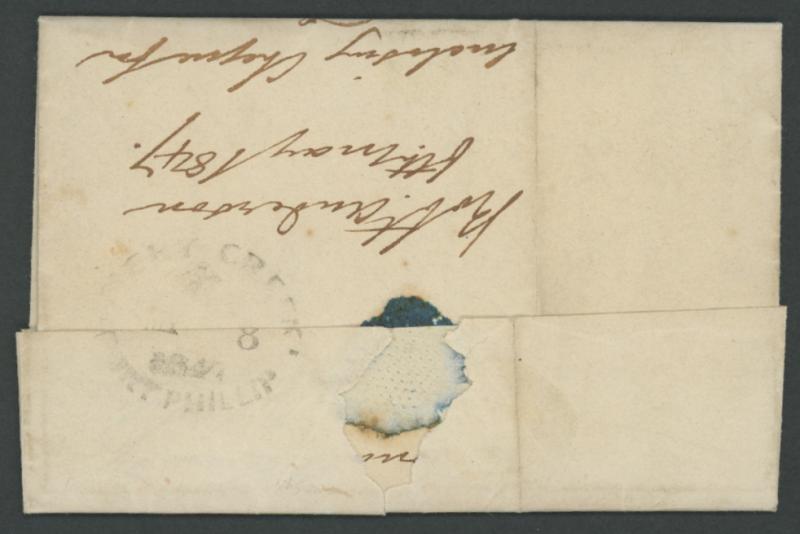 Robt. Anderson
8th May 1847.
Enclosing Cheque for
CREEK
8
PHILLIP